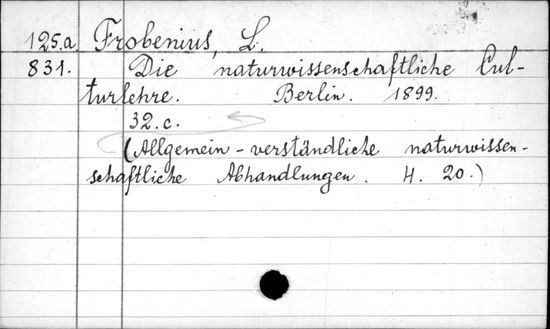 125.a Frobenius, L.
831. Die naturwissenschaftliche Cul-
turlehre. Berlin. 1899.
32.c.
(Allgemein-verständliche naturwissen-
schaftliche Abhandlungen. H. 20.)